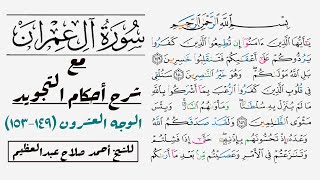 سورة آل عمران
مع
شرح أحكام التجويد
الوجه العشرون (١٤٩-١٥٣)
للشيخ أحمد صلاح عبدالعظيم
بِسْمِ اللَّهِ الرَّحْمَٰنِ الرَّحِيمِ
يَٰٓأَيُّهَا ٱلَّذِينَ ءَامَنُوٓا۟ إِن تُطِيعُوا۟ ٱلَّذِينَ كَفَرُوا۟
يَرُدُّوكُمْ عَلَىٰٓ أَعْقَٰبِكُمْ فَتَنقَلِبُوا۟ خَٰسِرِينَ ١٤٩
بَلِ ٱللَّهُ مَوْلَىٰكُمْ وَهُوَ خَيْرُ ٱلنَّٰصِرِينَ ١٥٠ سَنُلْقِى
فِى قُلُوبِ ٱلَّذِينَ كَفَرُوا۟ ٱلرُّعْبَ بِمَآ أَشْرَكُوا۟ بِٱللَّهِ
مَا لَمْ يُنَزِّلْ بِهِۦ سُلْطَٰنًا وَمَأْوَىٰهُمُ ٱلنَّارُ وَبِئْسَ
مَثْوَى ٱلظَّٰلِمِينَ ١٥١ وَلَقَدْ صَدَقَكُمُ ٱللَّهُ
وَعْدَهُۥٓ إِذْ تَحُسُّونَهُم بِإِذْنِهِۦ حَتَّىٰٓ إِذَا فَشِلْتُمْ
وَتَنَٰزَعْتُمْ فِى ٱلْأَمْرِ وَعَصَيْتُم مِّنۢ بَعْدِ مَآ أَرَىٰكُم